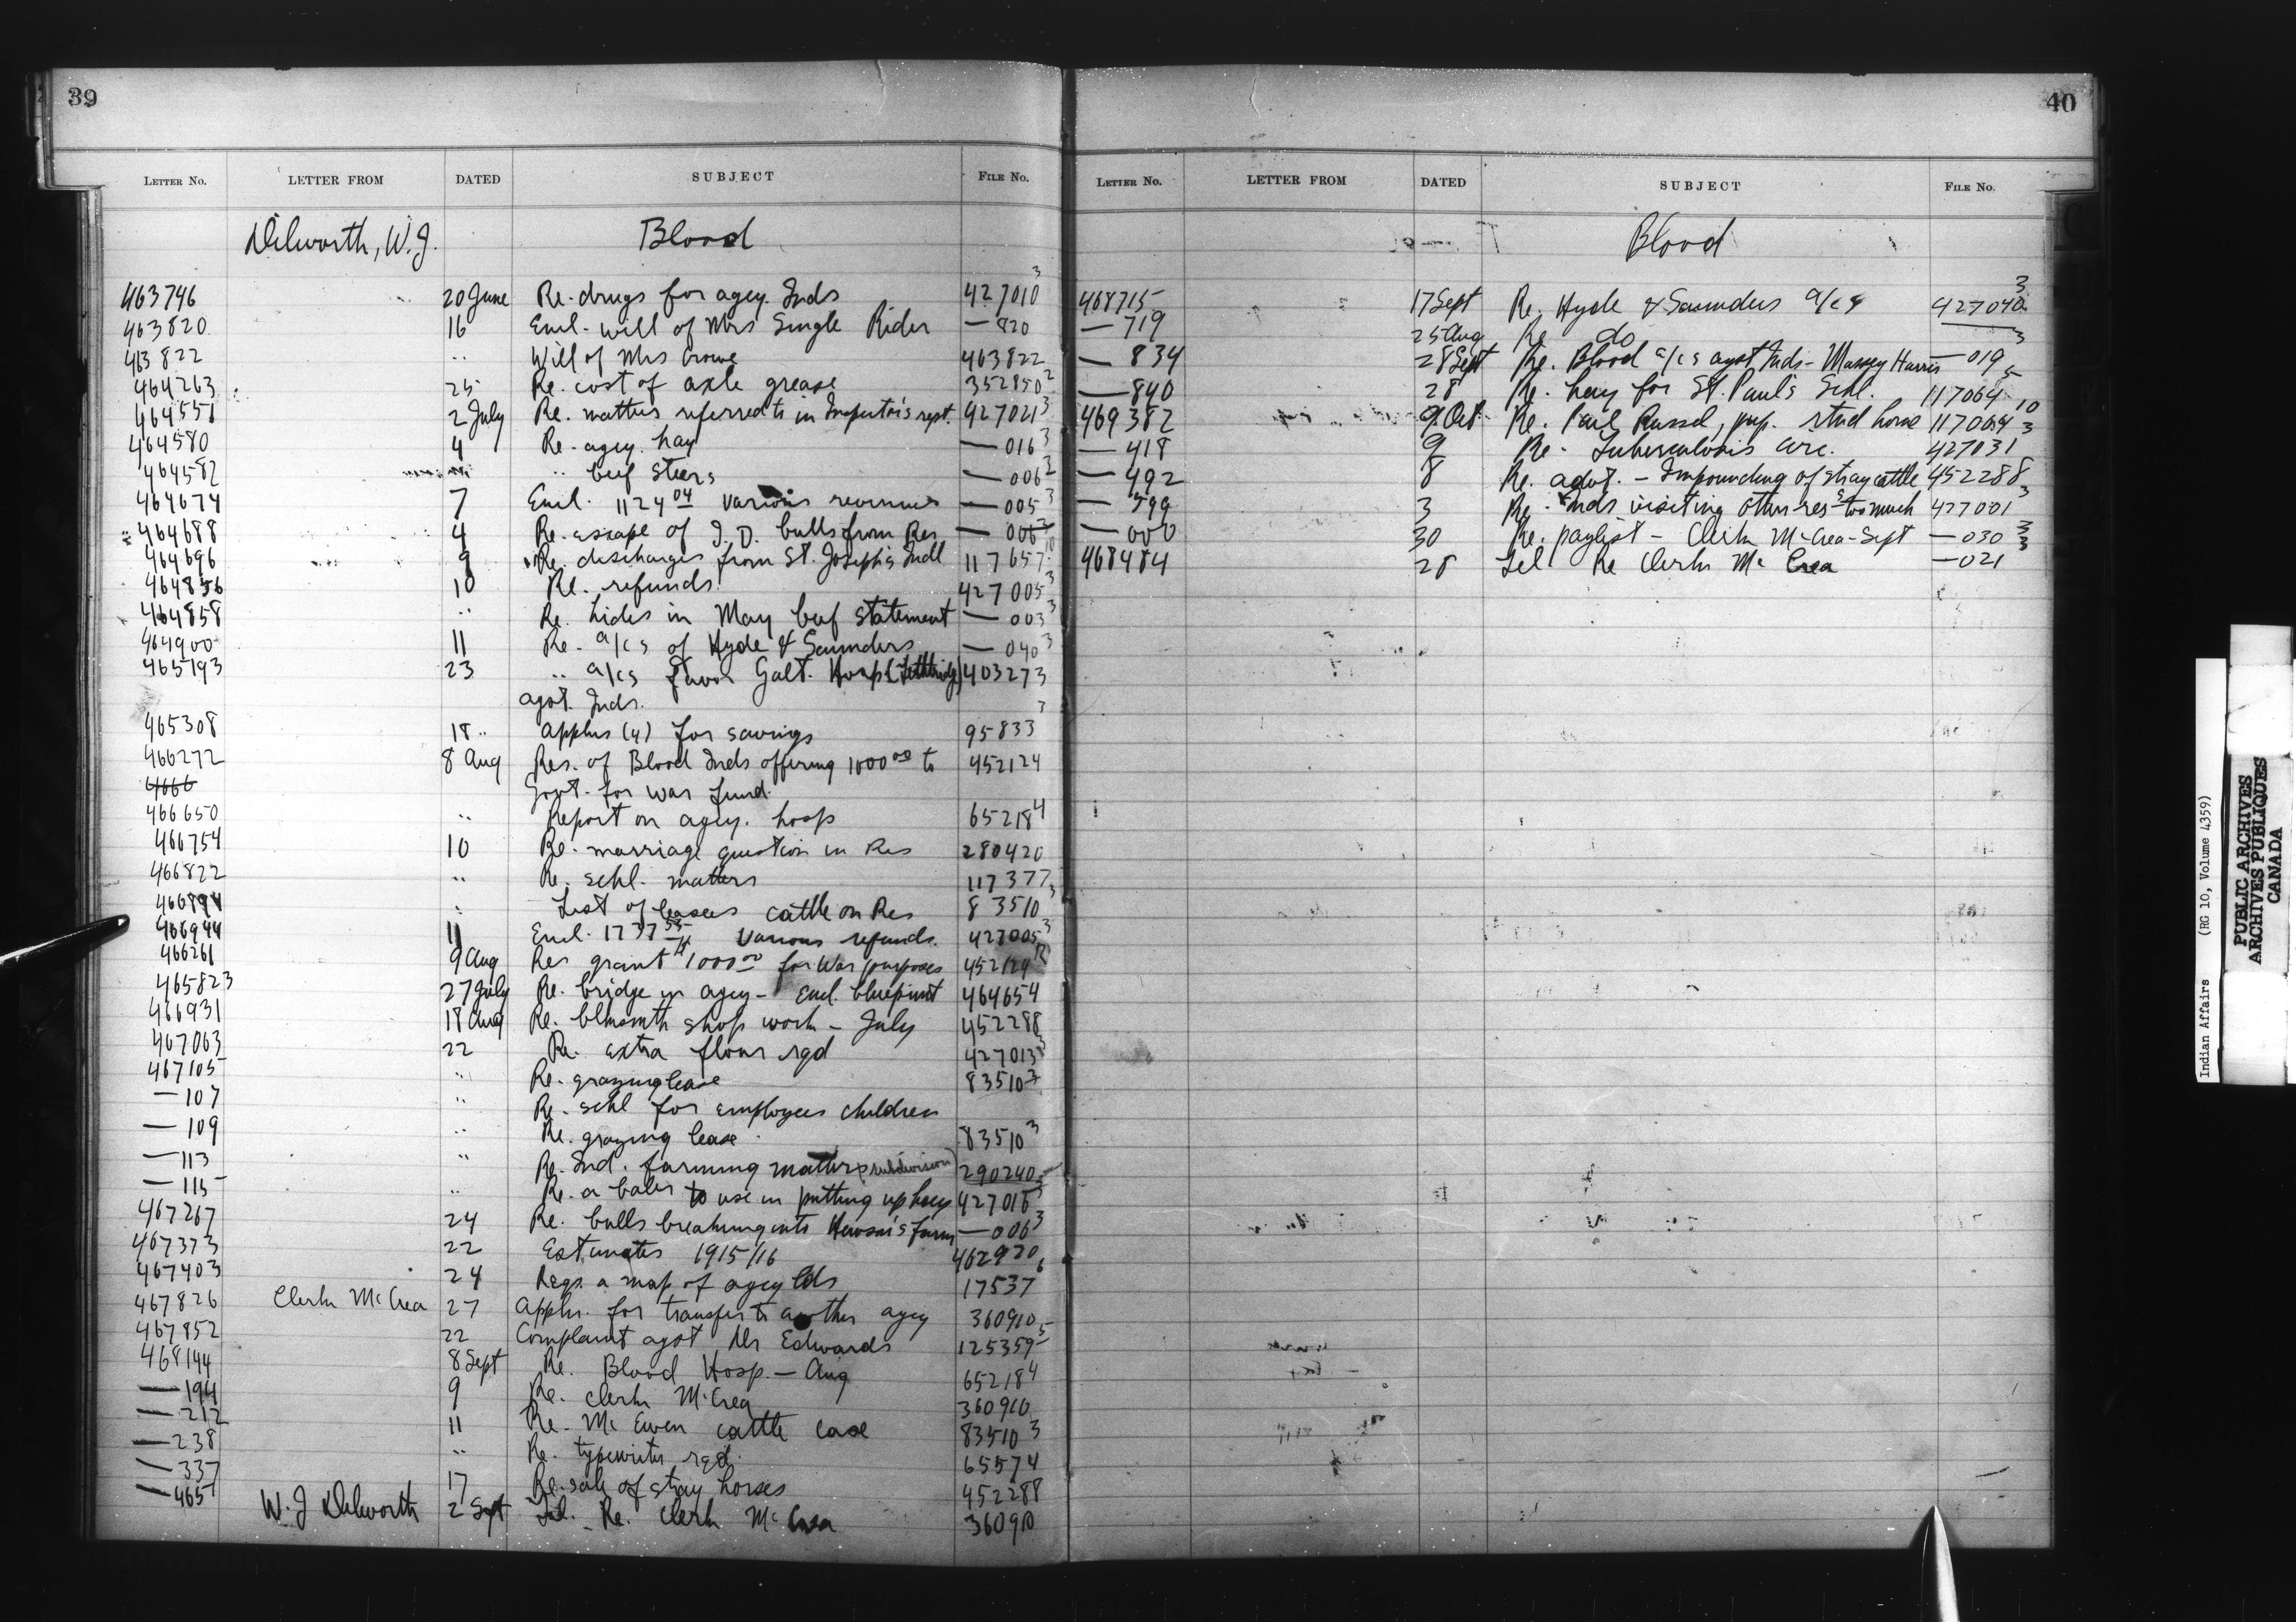 39
LETTER No. LETTER FROM DATED SUBJECT FILE No.
Dilworth, W.J. Blood
463746 20 June Re. drugs for agcy. Inds 427010 3
463820 16 Encl. will of Mrs Single Rider — 820
463822 " Will of Mrs Crowe 463822
464263 25 Re. cost of axle grease 352850 2
464551 2 July Re. matters referred to in Inspector's rept. 427021 3
464580 4 Re. agcy. hay — 016 3
464582 " " beef steers — 006 3
464674 7 Encl. 1124 04 various revenues — 005 3
464688 4 Re. escape of I.D. bulls from Res — 006 3
464696 9 Re. discharges from St. Joseph's Indl 117657 10
464856 10 Re. refunds 427005 3
464858 " Re. hides in May beef statement — 003 3
464900 11 Re. a/cs of Hyde & Saunders — 040 3
465193 23 " a/cs favor Galt. Hosp (Lethbridge) 403273
agst. Inds.
465308 18 " Applns (4) for savings 95833 3
466272 8 Aug Res. of Blood Inds offering 1000 00 to 452124
4666 Govt. for War Fund.
466650 " Report on agcy. hosp 65218 4
466754 10 Re. marriage question in Res 280420
466822 " Re. schl. matters 117377
466894 " List of leasees cattle on Res 83510 3
466944 11 Encl. 1737 55 various refunds. 427005 3
466261 9 Aug Res grant $1000 00 for War purposes 452124
465823 27 July Re. bridge in agcy - Encl. blueprint 464654
466931 18 Aug Re. blksmth shop work - July 452288
467063 22 Re. extra flour rqd 427013 3
467105 " Re. grazing lease 83510 3
— 107 " Re. schl for employees children
— 109 " Re. grazing lease. 83510 3
— 113 " Re. Ind. farming matters (subdivision) 290240
— 115 " Re. a baler to use in putting up hay 427016 3
467267 24 Re. bulls breaking into Hewson's farm — 006 3
467373 22 Estimates 1915/16 462920
467403 24 Reqs. a map of agcy lds 17537 6
467826 Clerk McCrea 27 Appln. for transfer to another agcy 360910
467852 22 Complaint agst Dr Edwards 125359 5
468144 8 Sept Re. Blood Hosp. — Aug 65218 4
— 194 9 Re. Clerk McCrea 360910
— 212 11 Re. McEwen cattle case 83510 3
— 238 " Re. typewriter rqd. 65574
— 337 17 Re. sale of stray horses 452288
— 465 W. J Dilworth 2 Sept Tel. Re. Clerk McCrea 360910
40
LETTER No. LETTER FROM DATED SUBJECT FILE No.
Blood
468715 17 Sept Re. Hyde & Saunders a/cs 427040 3
— 719 25 Aug Re do
— 834 28 Sept Re. Blood a/cs agst Inds - Massey Harris — 019 3
— 840 28 Re. hay for St. Paul's Schl. 117064 5
469382 9 Oct Re. Paul Russel, pup. 10
— 418 9 Re. Tuberculosis circ. 427031 3
— 492 8 Re. advt. - Impounding of stray cattle 452288
— 599 3 Re. Inds visiting other res. too much 427001 3
— 000 30 Re. paylist - Clerk McCrea - Sept — 030 3
468484 28 Tel Re Clerk McCrea — 021 3
Indian Affairs (RG 10, Volume 4359)
PUBLIC ARCHIVES
ARCHIVES PUBLIQUES
CANADA